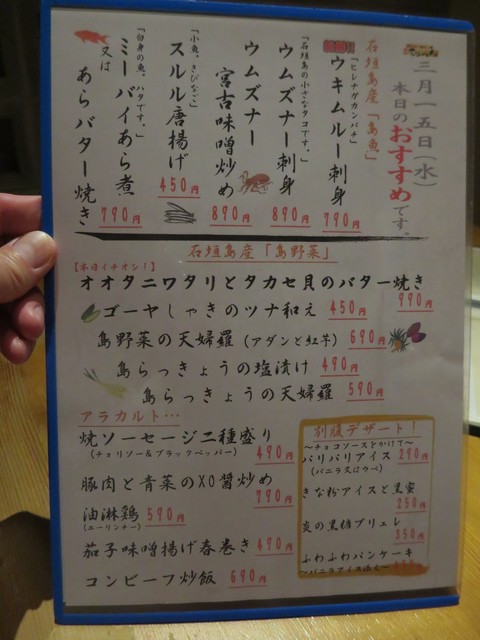 三月一五日(水)
本日のおすすめです。
石垣島産「島魚」
「ヒレナガカンパチ」
ウキムルー刺身
790円
「石垣島の小さなタコです。」
ウムズナー刺身
890円
ウムズナー
宮古味噌炒め
890円
「小魚。きびなご」
スルル唐揚げ
450円
「白身の魚。ハタです。」
ミーバイあら煮
又は
あらバター焼き
790円
石垣島産「島野菜」
【本日イチオシ!】
オオタニワタリとタカセ貝のバター焼き
990円
ゴーヤしゃきのツナ和え 450円
島野菜の天婦羅(アダンと紅芋) 690円
島らっきょうの塩漬け 490円
島らっきょうの天婦羅 590円
アラカルト…
焼ソーセージ二種盛り
(チョリソー&ブラックペッパー) 490円
豚肉と青菜のXO醤炒め
790円
油淋鶏 590円
(ユーリンチー)
茄子味噌揚げ春巻き 490円
コンビーフ炒飯 690円
別腹デザート!
~チョコソースをかけて~
パリパリアイス 290円
(バニラ又はウベ)
きな粉アイスと黒蜜
250円
炎の黒糖ブリュレ
350円
ふわふわパンケーキ
~バニラアイス添え~